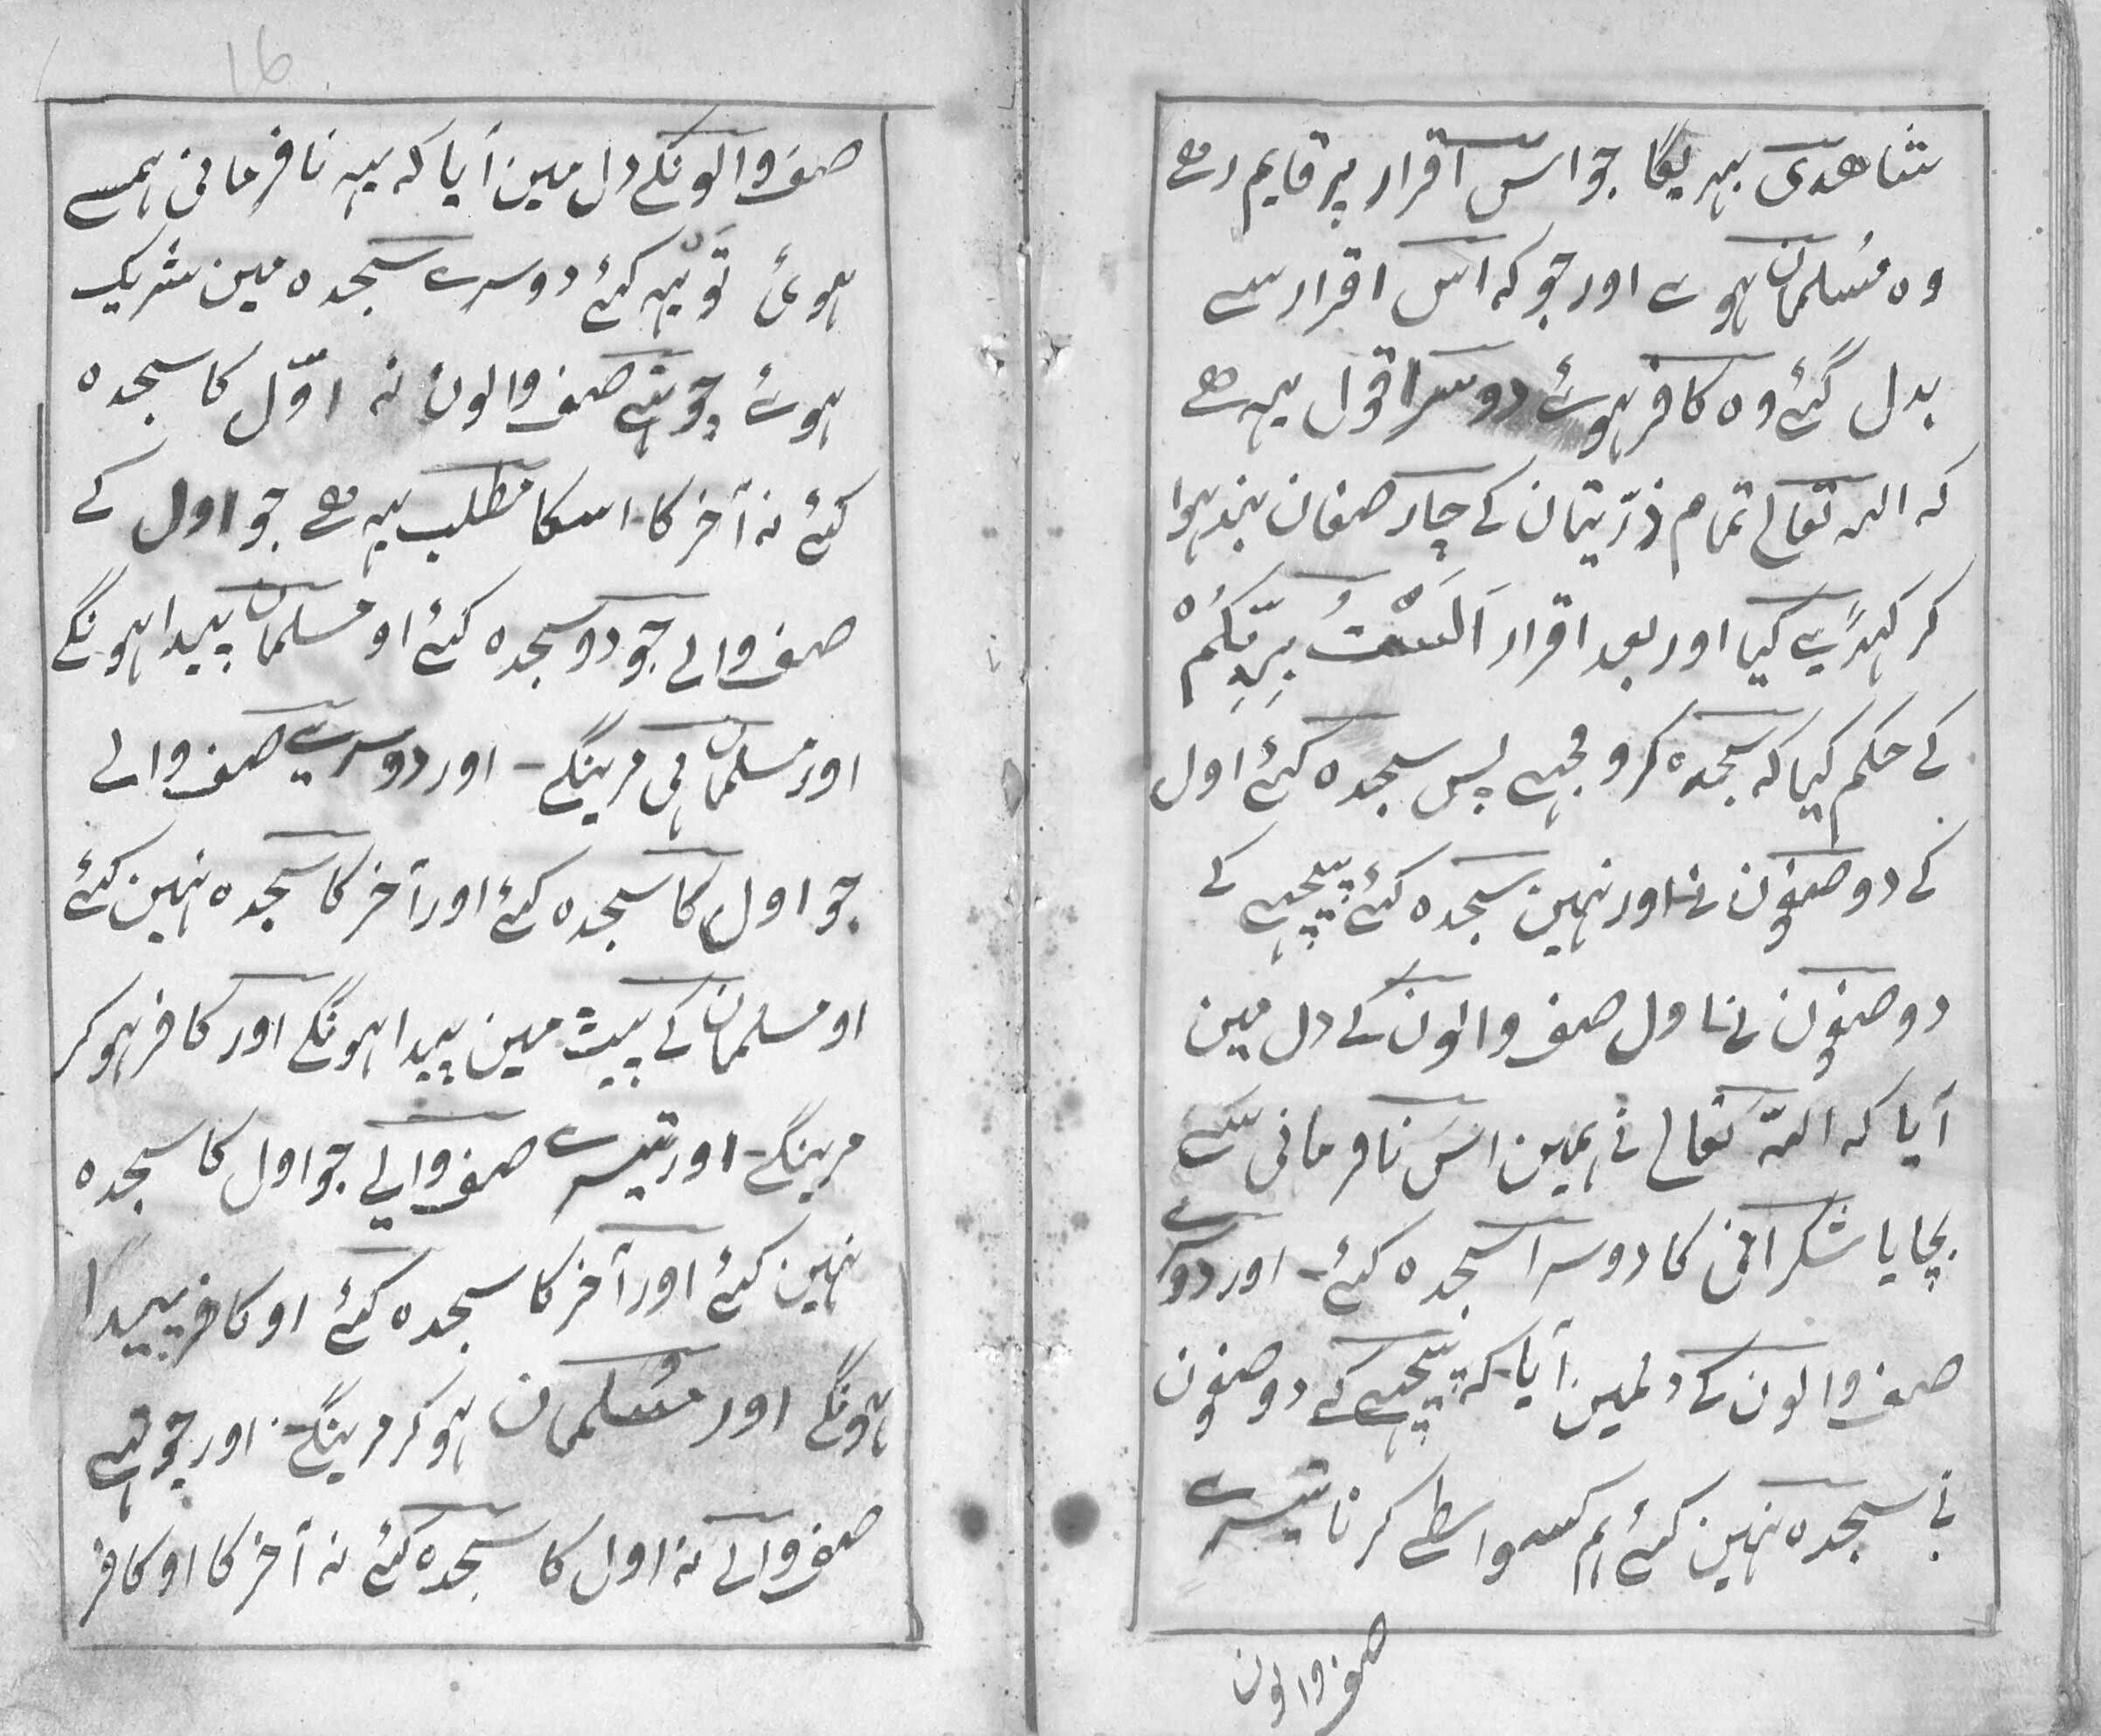 شاهدی بہریگا جو اس اقرار پر قایم رهے
وہ مُسلمان ہوے اور جو کہ اس اقرار سے
بدل گئے وہ کافر ہوئے دوسرا قول یہہ هے
کہ اللہ تعالے تمام ذرّیتان کے چار صفان بندہوا
کر کہڑے کیا اور بعد اقرار اَلَسْتُ بِرَبِّکُمْ
کے حکم کیا کہ سجدہ کرو مجہے پس سجدہ کئے اول
کے دو صفون نے اور نہین سجدہ کئے پیچہے کے
دو صفون نے اول صف والون کے دل مین
آیا کہ اللہ تعالے نے ہمین اس نافرمانی سے
بچایا شکرانی کا دوسرا سجدہ کئے - اور دوسرے
صف والون کے دلمین آیا کہ پیچہے کے دو صفون
نے سجدہ نہین کئے ہم کسواسطے کرنا تیسرے
صف والون
16
صف والونکے دل مین آیا کہ یہہ نافرمانی ہمسے
ہوئ توبہ کئے دوسرے سجدہ مین شریک
ہوئے چوتہے صف والون نہ اوّل کا سجدہ
کئے نہ آخر کا اسکا مطلب یہہ هے جو اول کے
صف والے جو دو سجدہ کئے او مسلمان پیدا ہونگے
اور مسلمان ہی مرینگے - اور دوسرے صف والے
جو اول کا سجدہ کئے اور آخر کا سجدہ نہین کئے
او مسلمان کے پیٹ مین پیدا ہونگے اور کافر ہو کر
مرینگے - اور تیسرے صف والے جو اول کا سجدہ
نہین کئے اور آخر کا سجدہ کئے او کافر پیدا
ہونگے اور مُسلمان ہو کر مرینگے - اور چوتہے
صف والے نہ اول کا سجدہ کئے نہ آخر کا او کافر